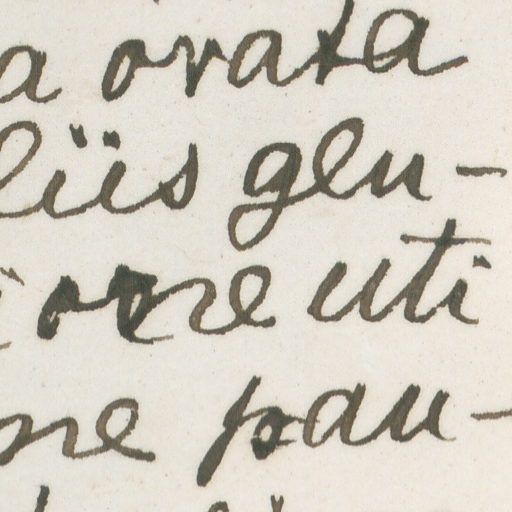 a ovata
liis glu-
ore uti
ne pau-